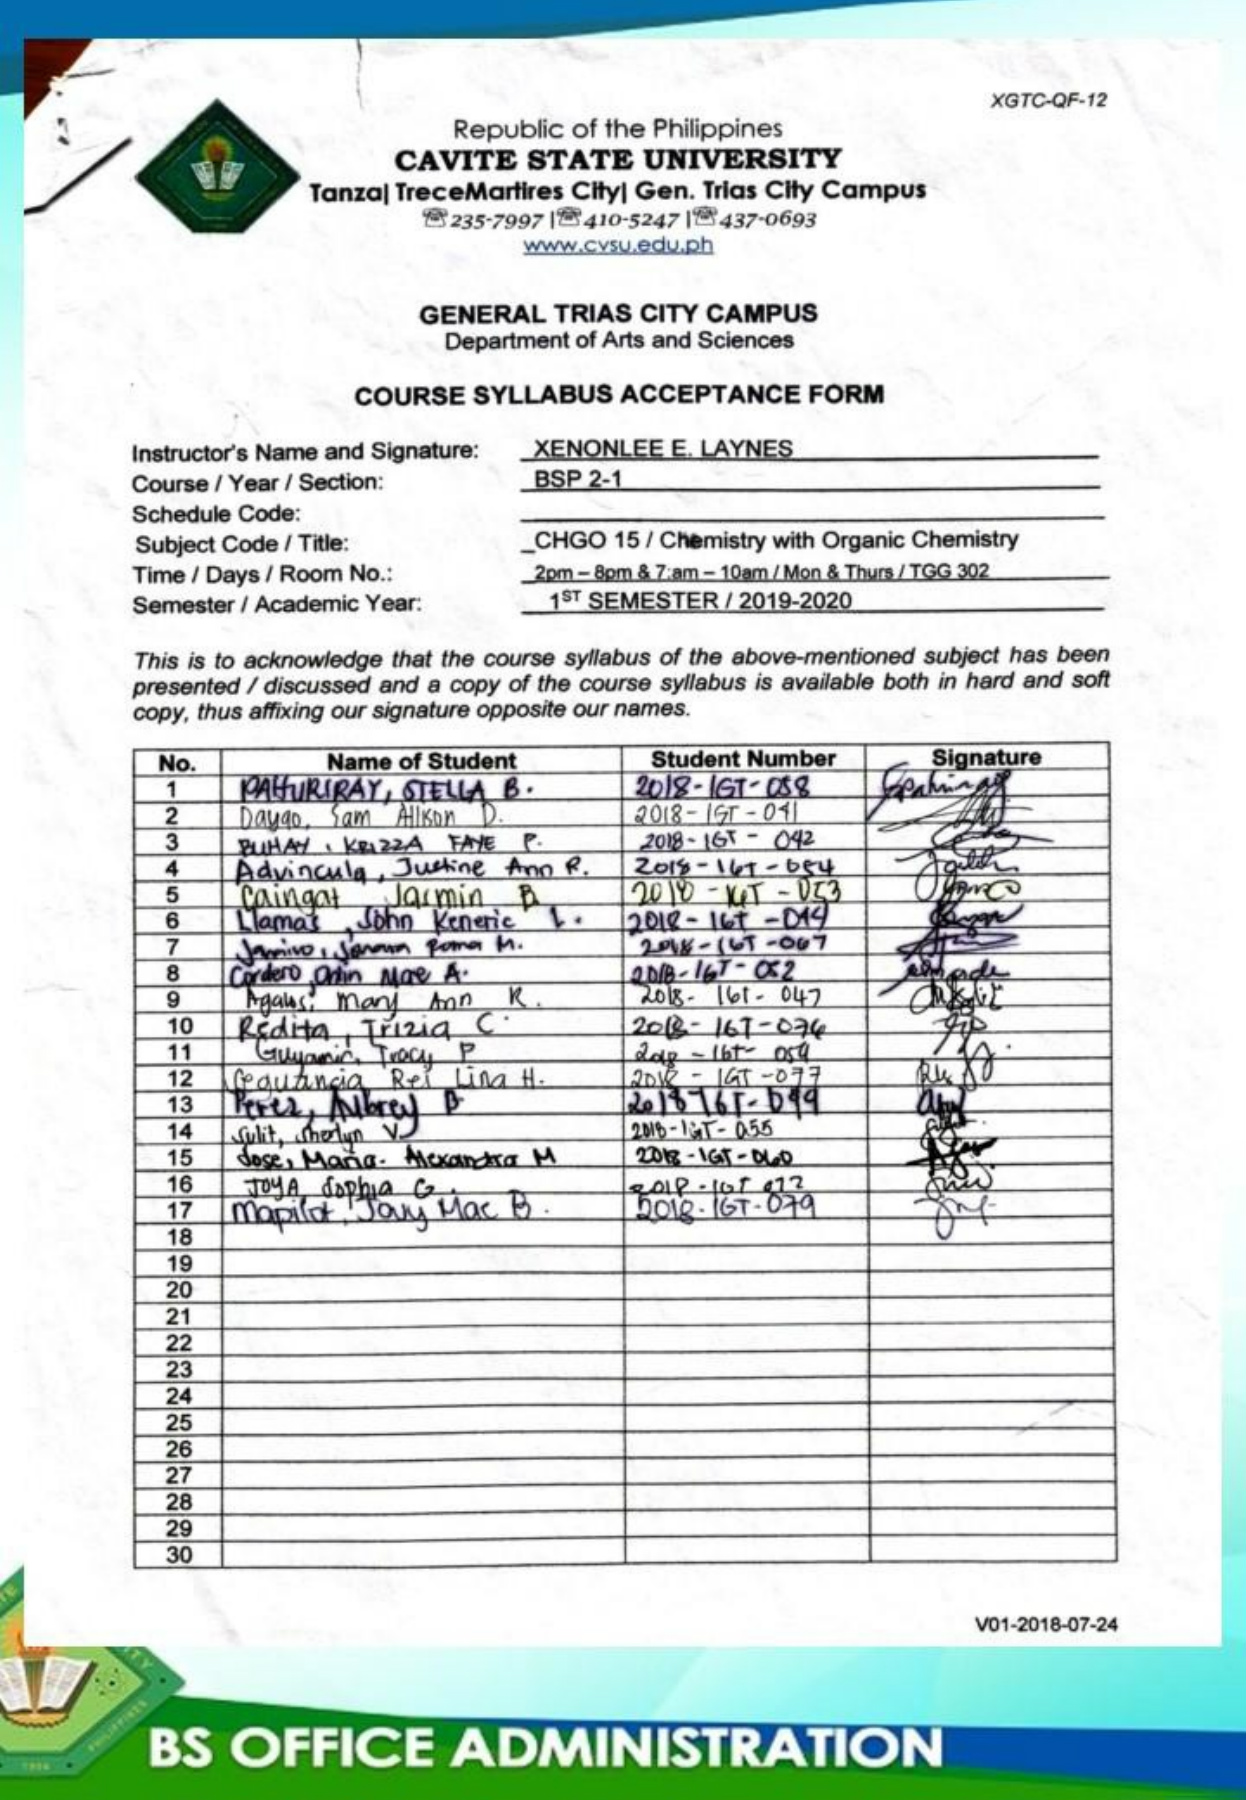 XGTC-QF-12
Republic of the Philippines
CAVITE STATE UNIVERSITY
Tanza| TreceMartires City| Gen. Trias City Campus
☏235-7997 |☏410-5247 |☏437-0693
www.cvsu.edu.ph
GENERAL TRIAS CITY CAMPUS
Department of Arts and Sciences
COURSE SYLLABUS ACCEPTANCE FORM
Instructor's Name and Signature: XENONLEE E. LAYNES
Course / Year / Section: BSP 2-1
Schedule Code:
Subject Code / Title: _CHGO 15 / Chemistry with Organic Chemistry
Time / Days / Room No.: 2pm – 8pm & 7:am – 10am / Mon & Thurs / TGG 302
Semester / Academic Year: 1ST SEMESTER / 2019-2020
This is to acknowledge that the course syllabus of the above-mentioned subject has been
presented / discussed and a copy of the course syllabus is available both in hard and soft
copy, thus affixing our signature opposite our names.
No. Name of Student Student Number Signature
1 PAHURIRAY, STELLA B. 2018-1GT-058
2 Daygo, Sam Allison D. 2018-1GT-041
3 BUHAY, KRIZZA FAYE P. 2018-1GT-042
4 Advincula, Justine Ann R. 2018-1GT-054
5 Caingat Jasmin B 2018-1GT-053
6 Llamas, John Keneric L. 2018-1GT-044
7 Roma M. 2018-1GT-067
8 Cordero, Mae A. 2018-1GT-052
9 Mary Ann R. 2018-1GT-047
10 Redita, Trizia C. 2018-1GT-076
11 Guyamin, Tracy P 2018-1GT-059
12 Rei Lina H. 2018-1GT-077
13 Perez, Aubrey B
14 Sulit, Sherlyn V. 2018-1GT-055
15 Jose, Maria Alexandra M 2018-1GT-060
16 JOYA, Sophia G.
17 Mac B. 2018-1GT-079
18
19
20
21
22
23
24
25
26
27
28
29
30
V01-2018-07-24
BS OFFICE ADMINISTRATION